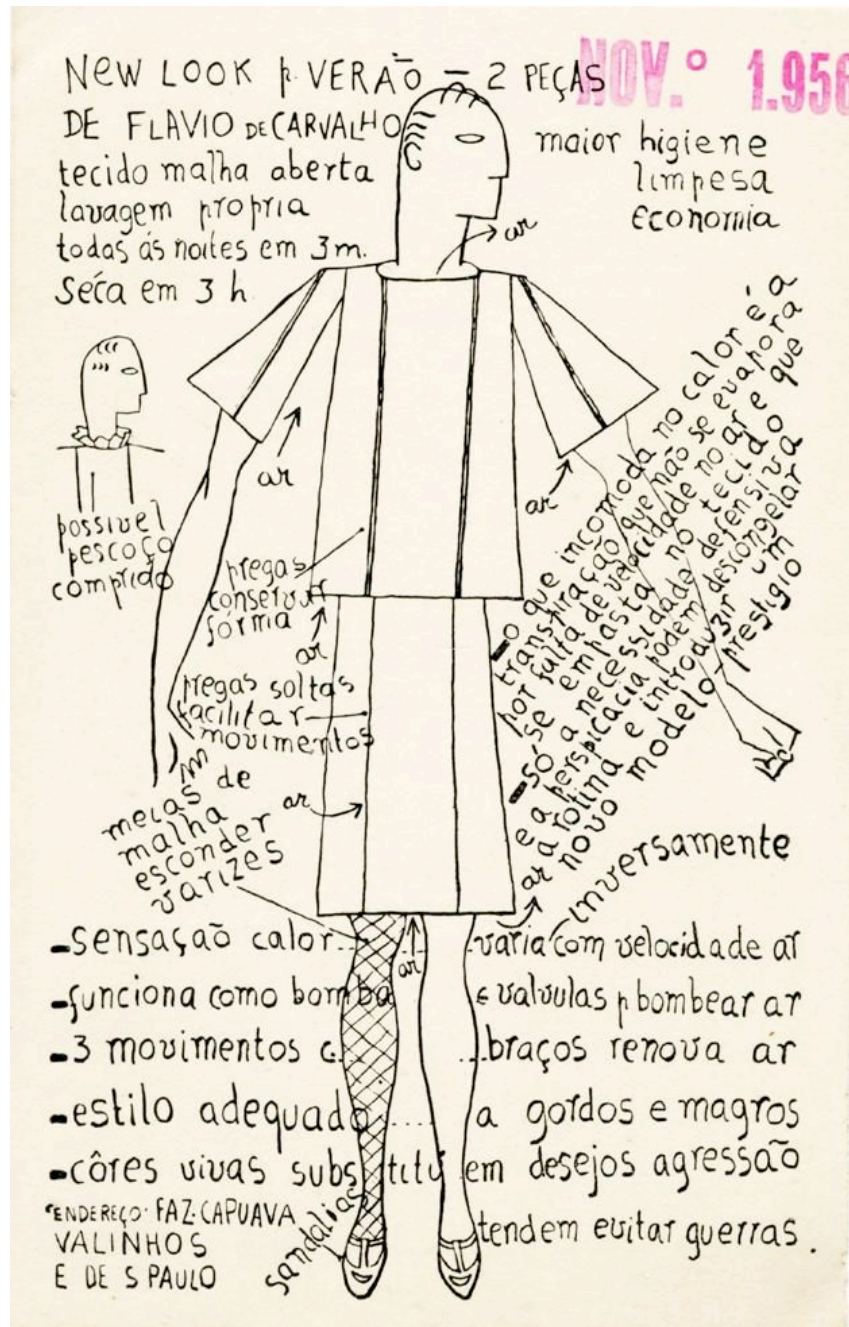 NEW LOOK p. VERÃO — 2 PEÇAS
NOV.º 1.956
DE FLAVIO DE CARVALHO
tecido malha aberta
lavagem propria
todas ás noites em 3 m.
Séca em 3 h.
maior higiene
limpesa
economia
ar
possivel
pescoço
comprido
ar
ar
pregas
conservar
fórma
ar
pregas soltas
facilitar
movimentos
ar
meias de
malha
esconder
varizes
-o que incomoda no calor é a
transpiração que não se evapora
por falta de velocidade no ar e que
se empasta no tecido
-só a necessidade defensiva
e a perspicacia podem descongelar
a rotina e introduzir um
novo modelo-prestigio
ar
inversamente
ar
-sensação calor... varia com velocidade ar
-funciona como bomba e valvulas p bombear ar
-3 movimentos c... ...braços renova ar
-estilo adequado .... a gordos e magros
-côres vivas substitúem desejos agressão
tendem evitar guerras.
ENDEREÇO· FAZ·CAPUAVA
VALINHOS
E DE S PAULO
sandalias